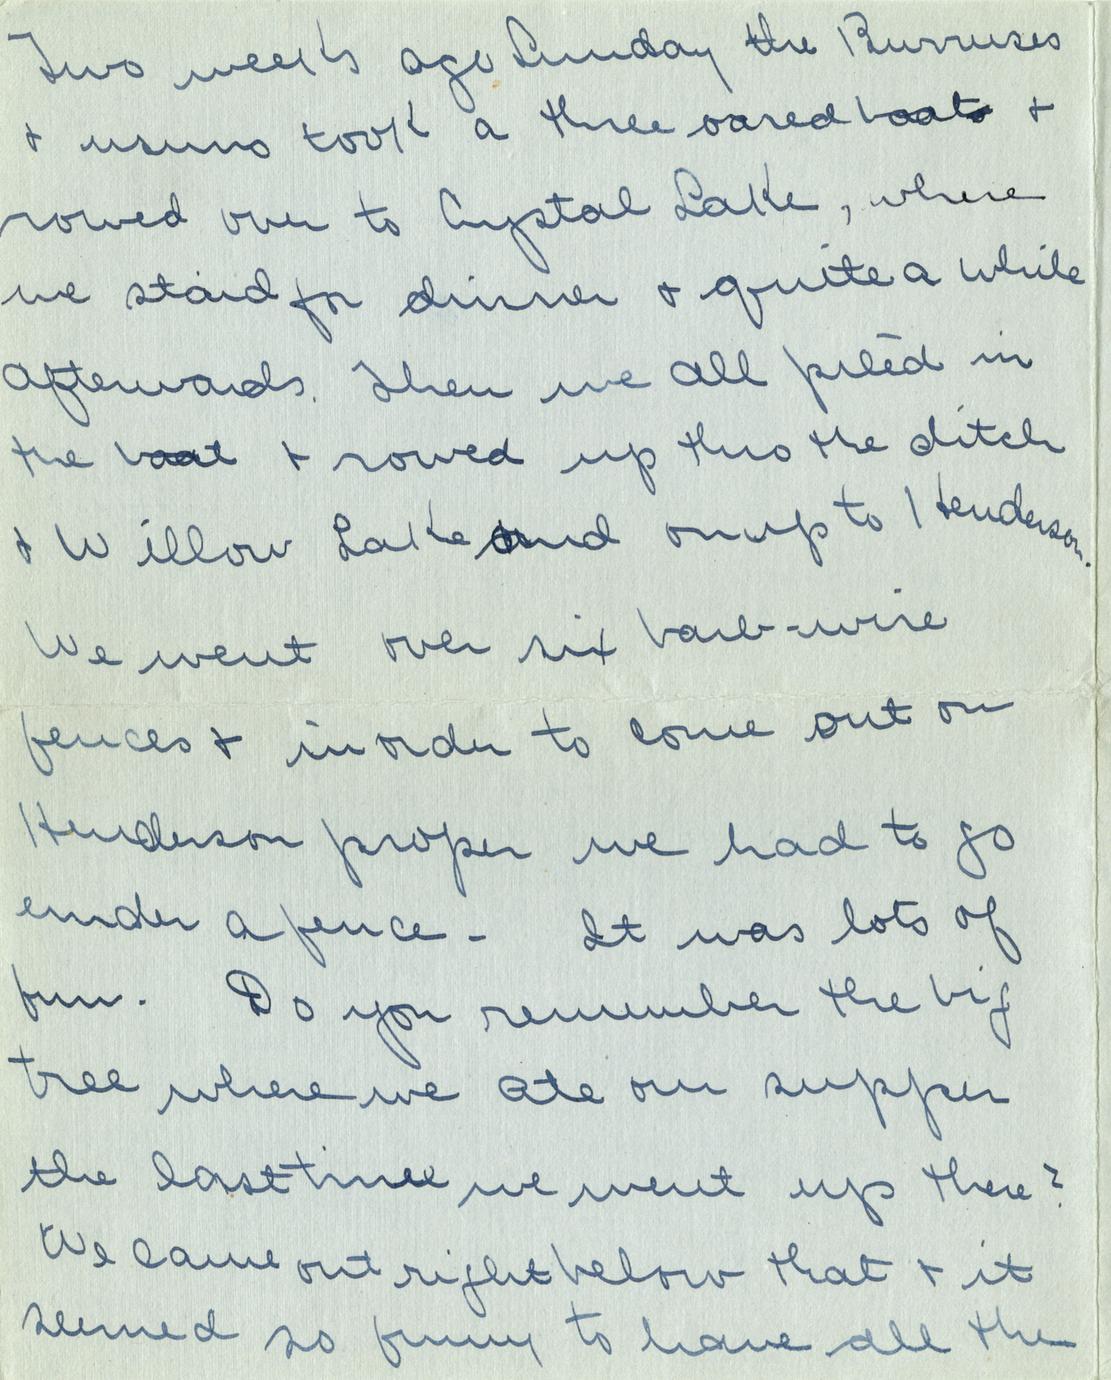 Two weeks ago Sunday the Burruses
+ usuns took a three oared boat +
rowed over to Crystal Lake, where
we staid for dinner + quite a while
afterwards. Then we all piled in
the boat + rowed up thro the ditch
+ Willow Lake and on up to Henderson.
We went over six barb-wire
fences + in order to come out on
Henderson proper we had to go
under a fence - It was lots of
fun. Do you remember the big
tree where we ate our supper
the last time we went up there?
We came out right below that + it
seemed so funny to have all the